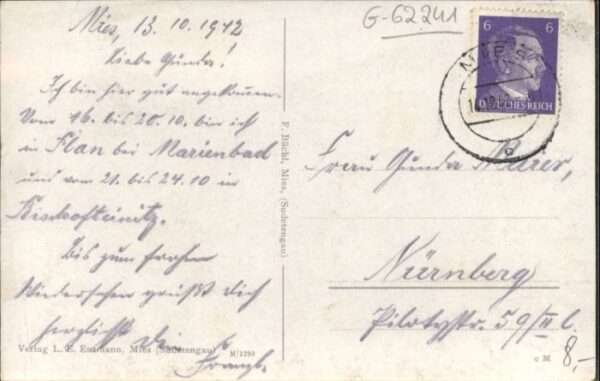 Mies, 13.10.1942
Liebe Gunda!
Ich bin hier gut angekommen.
Vom 16. bis 20.10. bin ich
in Plan bei Marienbad
und vom 21. bis 24.10 in
Bischofteinitz.
Bis zum frohen
Wiedersehen grüßt Dich
herzlichst
Verlag L. E. Engmann, Mies (Sudetengau)
M/1293
F. Büchl, Mies, (Sudetengau)
G-62241
6 6
MIES
DEUTSCHES REICH
Frau Gunda
Nürnberg
Pilotystr. 59/II l.
c M
8,-